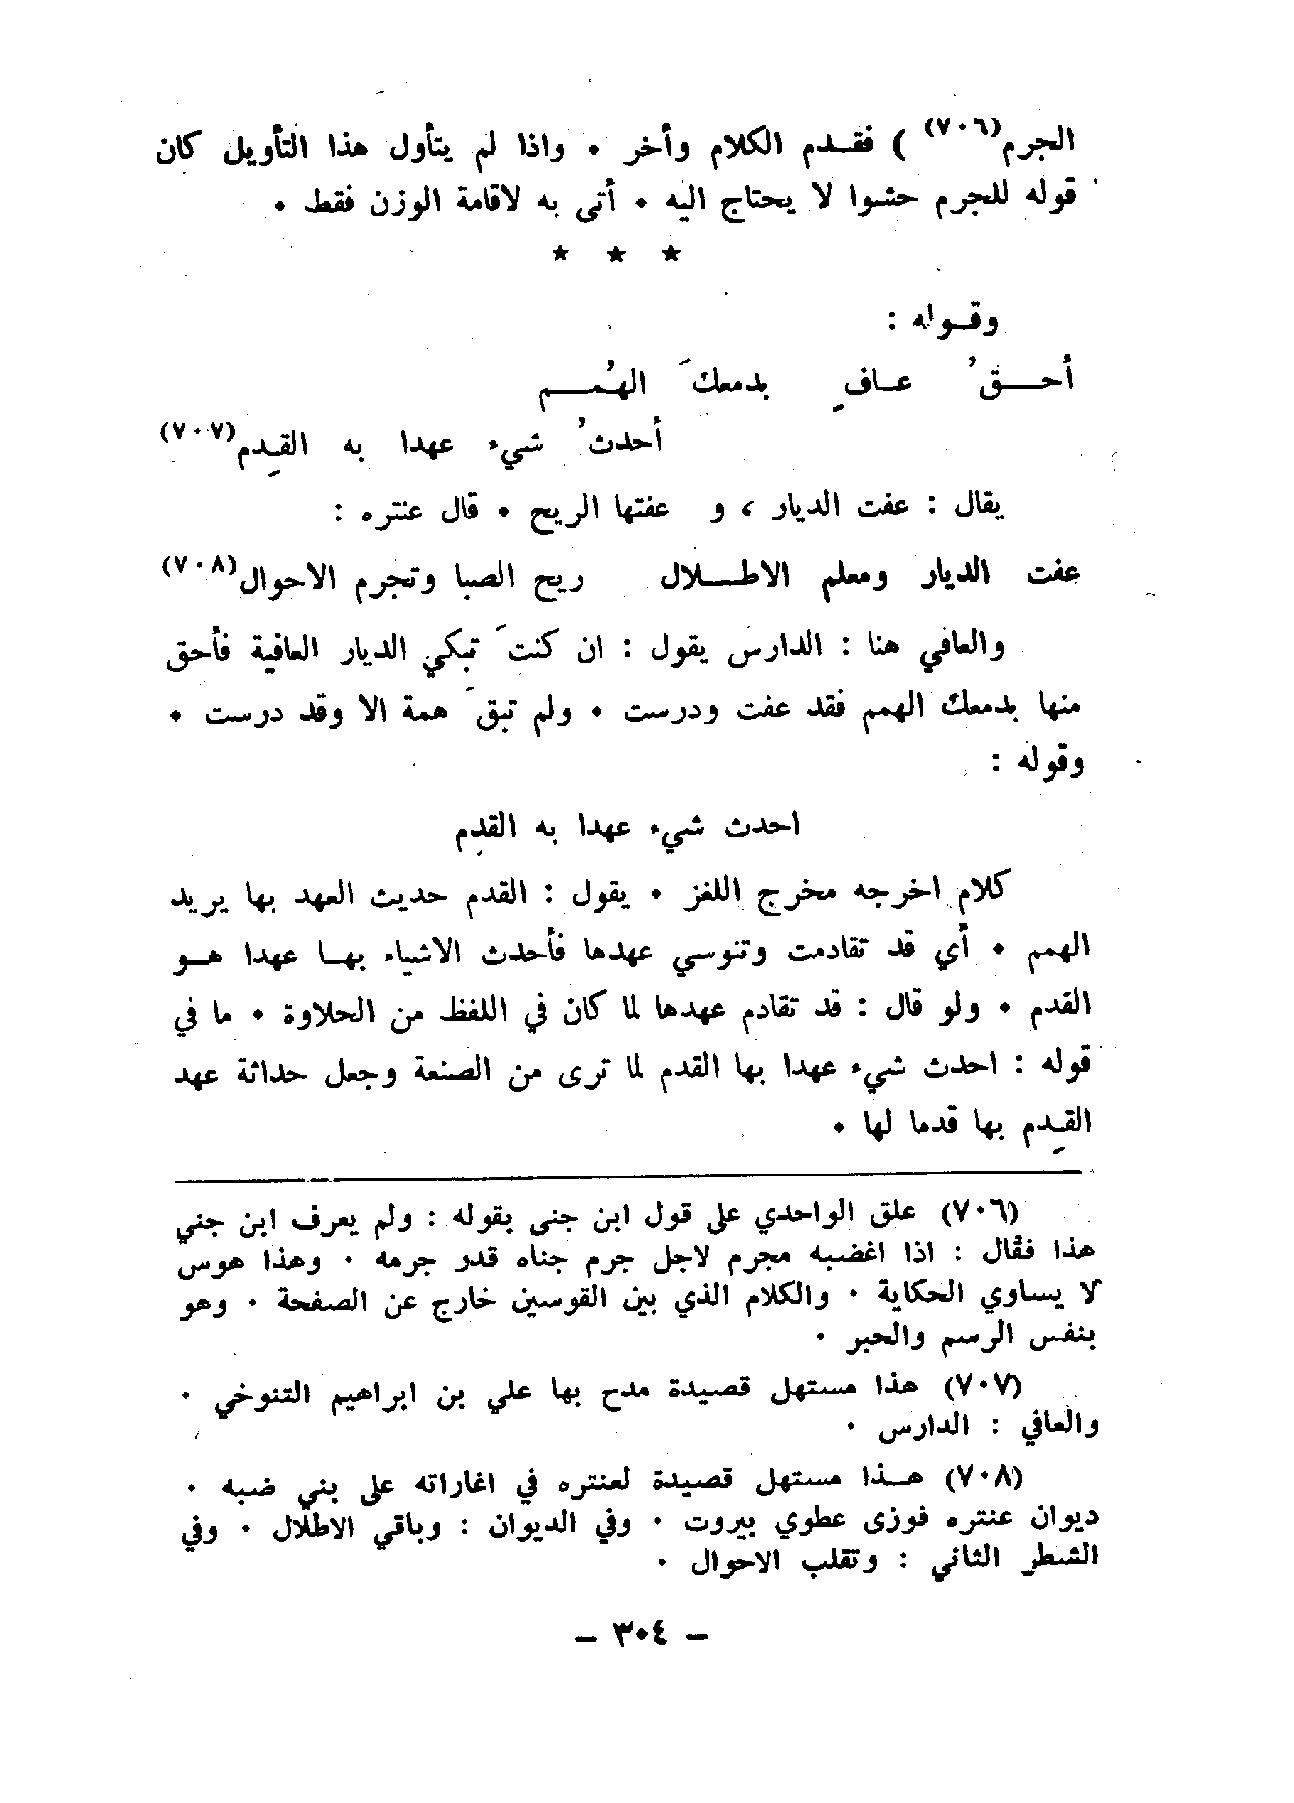 الجرم(٧٠٦) ) فقـدم الكلام وأخر ٠ واذا لم يتأول هذا التأويل كان
قوله للجرم حشوا لا يحتاج اليه ٠ أتى به لاقامة الوزن فقط ٠
★ ★ ★
وقـوله :
أحـــقُ عـافٍ بدمعكَ الهُمـــم
أحدثُ شيء عهدا به القِدم(٧٠٧)
يقال : عفت الديار ، و عفتها الريح ٠ قال عنتره :
عفت الديار ومعلم الاطـــلال ريح الصبا وتجرم الاحوال(٧٠٨)
والعافي هنا : الدارس يقول : ان كنتَ تبكي الديار العافية فأحق
منها بدمعك الهمم فقد عفت ودرست ٠ ولم تبقَ همة الا وقد درست ٠
وقوله :
احدث شيء عهدا به القدِم
كلام اخرجه مخرج اللغز ٠ يقول : القدم حديث العهد بها يريد
الهمم ٠ أي قد تقادمت وتنوسي عهدها فأحدث الاشياء بهـا عهدا هـو
القدم ٠ ولو قال : قد تقادم عهدها لما كان في اللفظ من الحلاوة ٠ ما في
قوله : احدث شيء عهدا بها القدم لما ترى من الصنعة وجعل حداثة عهد
القِدم بها قدما لها ٠
(٧٠٦) علق الواحدي على قول ابن جنى بقوله : ولم يعرف ابن جني
هذا فقال : اذا اغضبه مجرم لاجل جرم جناه قدر جرمه ٠ وهذا هوس
لا يساوي الحكاية ٠ والكلام الذي بين القوسين خارج عن الصفحة ٠ وهو
بنفس الرسم والحبر ٠
(٧٠٧) هذا مستهل قصيدة مدح بها علي بن ابراهيم التنوخي ٠
والعافي : الدارس ٠
(٧٠٨) هـذا مستهل قصيدة لعنتره في اغاراته على بني ضبه ٠
ديوان عنتره فوزى عطوي بيروت ٠ وفي الديوان : وباقي الاطلال ٠ وفي
الشطر الثاني : وتقلب الاحوال ٠
– ٣٠٤ –